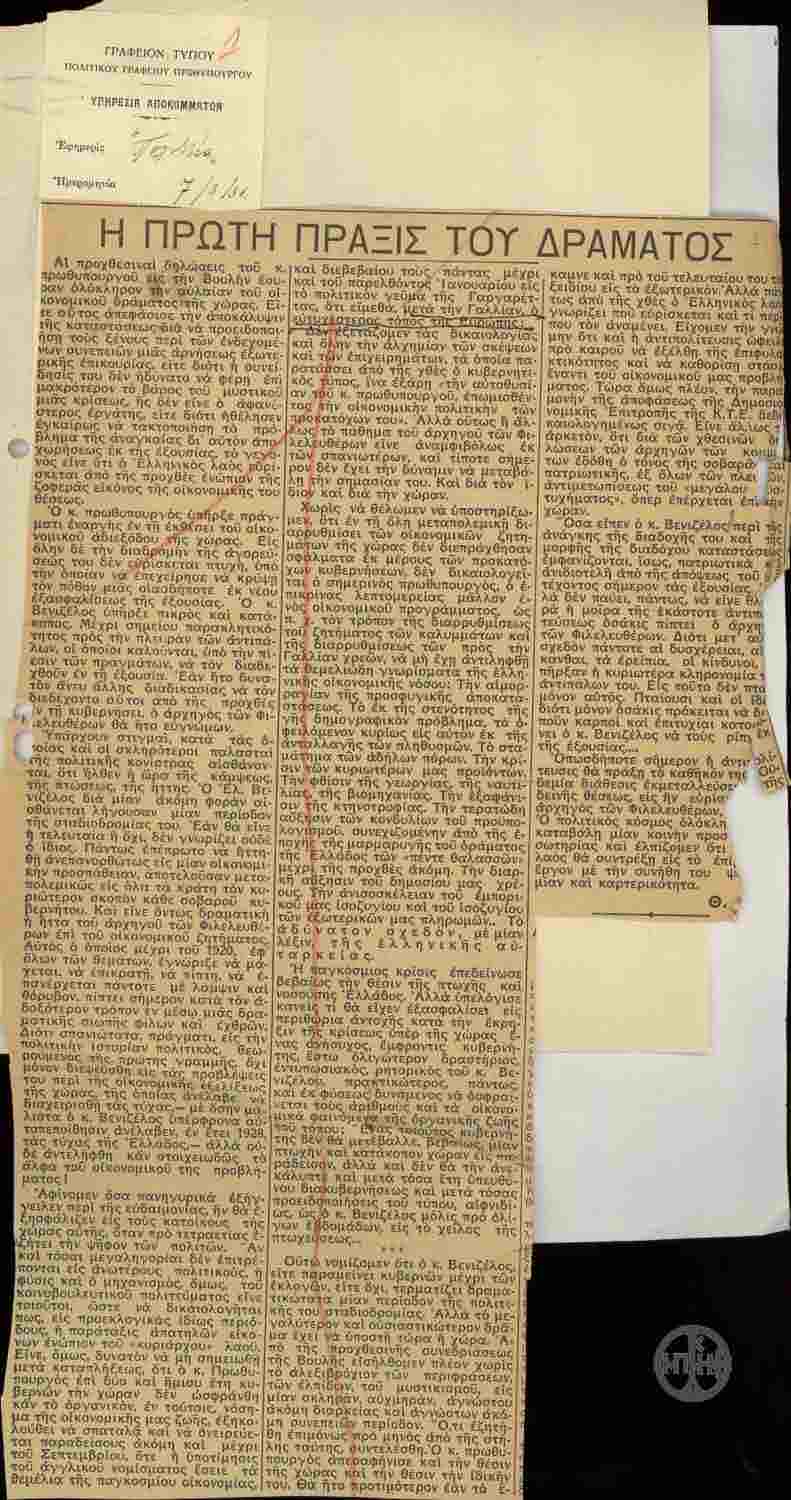 ΓΡΑΦΕΙΟΝ ΤΥΠΟΥ
ΠΟΛΙΤΙΚΟΥ ΓΡΑΦΕΙΟΥ ΠΡΩΘΥΠΟΥΡΓΟΥ
ΥΠΗΡΕΣΙΑ ΑΠΟΚΟΜΜΑΤΩΝ
Ἐφημερὶς
Ἡμερομηνία
Η ΠΡΩΤΗ ΠΡΑΞΙΣ ΤΟΥ ΔΡΑΜΑΤΟΣ
Αἱ προχθεσιναὶ δηλώσεις τοῦ κ.
πρωθυπουργοῦ εἰς τὴν Βουλὴν ἔσυ-
ραν ὁλόκληρον τὴν αὐλαίαν τοῦ οἰ-
κονομικοῦ δράματος τῆς χώρας. Εἴ-
τε οὗτος ἀπεφάσισε τὴν ἀποκάλυψιν
τῆς καταστάσεως διὰ νὰ προειδοποι-
ήσῃ τοὺς ξένους περὶ τῶν ἐνδεχομέ-
νων συνεπειῶν μιᾶς ἀρνήσεως ἐξωτε-
ρικῆς ἐπικουρίας, εἴτε διότι ἡ συνεί-
δησίς του δὲν ἠδύνατο νὰ φέρῃ ἐπὶ
μακρότερον τὸ βάρος τοῦ μυστικοῦ
μιᾶς κρίσεως, ἧς δὲν εἶνε ὁ ἀφανέ-
στερος ἐργάτης, εἴτε διότι ἠθέλησεν
ἐγκαίρως νὰ τακτοποιήσῃ τὸ πρό-
βλημα τῆς ἀναγκαίας δι' αὐτὸν ἀπο-
χωρήσεως ἐκ τῆς ἐξουσίας, τὸ γεγο-
νὸς εἶνε ὅτι ὁ Ἑλληνικὸς λαὸς εὑρί-
σκεται ἀπὸ τῆς προχθὲς ἐνώπιον τῆς
ζοφερᾶς εἰκόνος τῆς οἰκονομικῆς του
θέσεως.
Ὁ κ. πρωθυπουργὸς ὑπῆρξε πράγ-
ματι ἐναργὴς ἐν τῇ ἐκθέσει τοῦ οἰκο-
νομικοῦ ἀδιεξόδου τῆς χώρας. Εἰς
ὅλην δὲ τὴν διαδρομὴν τῆς ἀγορεύ-
σεώς του δὲν εὑρίσκεται πτυχή, ὑπὸ
τὴν ὁποίαν νὰ ἐπεχείρησε νὰ κρύψῃ
τὸν πόθον μιᾶς οἱασδήποτε ἐκ νέου
ἐξασφαλίσεως τῆς ἐξουσίας. Ὁ κ.
Βενιζέλος ὑπῆρξε πικρὸς καὶ κατά-
κοπος. Μέχρι σημείου παρακλητικό-
τητος πρὸς τὴν πλευρὰν τῶν ἀντιπά-
λων, οἱ ὁποῖοι καλοῦνται, ὑπὸ τὴν πί-
εσιν τῶν πραγμάτων, νὰ τὸν διαδε-
χθοῦν ἐν τῇ ἐξουσίᾳ. Ἐὰν ἦτο δυνα-
τὸν ἄνευ ἄλλης διαδικασίας νὰ τὸν
διεδέχοντο οὗτοι ἀπὸ τῆς προχθὲς
ἐν τῇ κυβερνήσει, ὁ ἀρχηγὸς τῶν Φι-
λελευθέρων θὰ ἦτο εὐγνώμων.
Ὑπάρχουν στιγμαί, κατὰ τὰς ὁ-
ποίας καὶ οἱ σκληρότεροι παλαισταὶ
τῆς πολιτικῆς κονίστρας αἰσθάνον-
ται, ὅτι ἦλθεν ἡ ὥρα τῆς κάμψεως,
τῆς πτώσεως, τῆς ἥττης. Ὁ Ἐλ. Βε-
νιζέλος διὰ μίαν ἀκόμη φορὰν αἰ-
σθάνεται λήγουσαν μίαν περίοδον
τῆς σταδιοδρομίας του. Ἐὰν θὰ εἶνε
ἡ τελευταία ἢ ὄχι, δὲν γνωρίζει οὐδὲ
ὁ ἴδιος. Πάντως ἐπέπρωτο νὰ ἡττη-
θῇ ἀνεπανορθώτως εἰς μίαν οἰκονομι-
κὴν προσπάθειαν, ἀποτελοῦσαν μετα-
πολεμικῶς εἰς ὅλα τὰ κράτη τὸν κυ-
ριώτερον σκοπὸν κάθε σοβαροῦ κυ-
βερνήτου. Καὶ εἶνε ὄντως δραματικὴ
ἡ ἧττα τοῦ ἀρχηγοῦ τῶν Φιλελευθέ-
ρων ἐπὶ τοῦ οἰκονομικοῦ ζητήματος.
Αὐτὸς ὁ ὁποῖος μέχρι τοῦ 1920, ἐφ'
ὅλων τῶν θεμάτων, ἐγνώριζε νὰ μά-
χεται, νὰ ἐπικρατῇ, νὰ πίπτῃ, νὰ ἐ-
πανέρχεται πάντοτε μὲ λάμψιν καὶ
θόρυβον, πίπτει σήμερον κατὰ τὸν ἀ-
δοξότερον τρόπον ἐν μέσῳ μιᾶς δρα-
ματικῆς σιωπῆς φίλων καὶ ἐχθρῶν.
Διότι σπανιώτατα, πράγματι, εἰς τὴν
πολιτικὴν ἱστορίαν πολιτικός, θεω-
ρούμενος τῆς πρώτης γραμμῆς, ὄχι
μόνον διεψεύσθη εἰς τὰς προβλέψεις
του περὶ τῆς οἰκονομικῆς ἐξελίξεως
τῆς χώρας, τῆς ὁποίας ἀνέλαβε νὰ
διαχειρισθῇ τὰς τύχας,— μὲ ὅσην μά-
λιστα ὁ κ. Βενιζέλος ὑπέρφρονα αὐ-
τοπεποίθησιν ἀνέλαβεν, ἐν ἔτει 1928,
τὰς τύχας τῆς Ἑλλάδος,— ἀλλὰ οὐ-
δὲ ἀντελήφθη κἂν στοιχειωδῶς τὸ
ἄλφα τοῦ οἰκονομικοῦ της προβλή-
ματος!
Ἀφίνομεν ὅσα πανηγυρικὰ ἐξήγ-
γειλεν περὶ τῆς εὐδαιμονίας, ἣν θὰ ἐ-
ξησφάλιζεν εἰς τοὺς κατοίκους τῆς
χώρας αὐτῆς, ὅταν πρὸ τετραετίας ἐ-
ζήτει τὴν ψῆφον τῶν πολιτῶν. Ἂν
καὶ τόσαι μεγαληγορίαι δὲν ἐπιτρέ-
πονται εἰς ἀνωτέρους πολιτικούς, ἡ
φύσις καὶ ὁ μηχανισμός, ὅμως, τοῦ
κοινοβουλευτικοῦ πολιτεύματος εἶνε
τοιοῦτοι, ὥστε νὰ δικαιολογῆται
πως, εἰς προεκλογικὰς ἰδίως περιό-
δους, ἡ παράταξις ἀπατηλῶν εἰκό-
νων ἐνώπιον τοῦ «κυριάρχου» λαοῦ.
Εἶνε, ὅμως, δυνατὸν νὰ μὴ σημειωθῇ
μετὰ καταπλήξεως, ὅτι ὁ κ. Πρωθυ-
πουργὸς ἐπὶ δύο καὶ ἥμισυ ἔτη κυ-
βερνῶν τὴν χώραν δὲν ὠσφράνθη
κἂν τὸ ὀργανικόν, ἐν τούτοις, νόση-
μα τῆς οἰκονομικῆς μας ζωῆς, ἐξηκο-
λούθει νὰ σπαταλᾷ καὶ νὰ ὀνειρεύε-
ται παραδείσους ἀκόμη καὶ μέχρι
τοῦ Σεπτεμβρίου, ὅτε ἡ ὑποτίμησις
τοῦ ἀγγλικοῦ νομίσματος ἔσεισε τὰ
θεμέλια τῆς παγκοσμίου οἰκονομίας,
καὶ διεβεβαίου τοὺς πάντας μέχρι
καὶ τοῦ παρελθόντος Ἰανουαρίου εἰς
τὸ πολιτικὸν γεῦμα τῆς Γαργαρέτ-
τας, ὅτι εἴμεθα, μετὰ τὴν Γαλλίαν, ὁ
εὐτυχέστερος τόπος τῆς Εὐρώπης;
Δὲν ἐξετάζομεν τὰς δικαιολογίας
καὶ ὅλην τὴν ἀλχημίαν τῶν σκέψεων
καὶ τῶν ἐπιχειρημάτων, τὰ ὁποῖα πα-
ρατάσσει ἀπὸ τῆς χθὲς ὁ κυβερνητι-
κὸς τύπος, ἵνα ἐξάρῃ «τὴν αὐτοθυσί-
αν τοῦ κ. πρωθυπουργοῦ, ἐπωμισθέν-
τος τὴν οἰκονομικὴν πολιτικὴν τῶν
προκατόχων του». Ἀλλὰ οὕτως ἢ ἄλ-
λως τὸ πάθημα τοῦ ἀρχηγοῦ τῶν Φι-
λελευθέρων εἶνε ἀναμφιβόλως ἐκ
τῶν σπανιωτέρων, καὶ τίποτε σήμε-
ρον δὲν ἔχει τὴν δύναμιν νὰ μεταβά-
λῃ τὴν σημασίαν του. Καὶ διὰ τὸν ἴ-
διον καὶ διὰ τὴν χώραν.
Χωρὶς νὰ θέλωμεν νὰ ὑποστηρίξω-
μεν, ὅτι ἐν τῇ ὅλῃ μεταπολεμικῇ δι-
αρρυθμίσει τῶν οἰκονομικῶν ζητη-
μάτων τῆς χώρας δὲν διεπράχθησαν
σφάλματα ἐκ μέρους τῶν προκατό-
χων κυβερνήσεων, δὲν δικαιολογεῖ-
ται ὁ σημερινὸς πρωθυπουργός, ὁ ἐ-
πικρίνας λεπτομερείας μᾶλλον ἑ-
νὸς οἰκονομικοῦ προγράμματος, ὡς
π. χ. τὸν τρόπον τῆς διαρρυθμίσεως
τοῦ ζητήματος τῶν καλυμμάτων καὶ
τῆς διαρρυθμίσεως τῶν πρὸς τὴν
Γαλλίαν χρεῶν, νὰ μὴ ἔχῃ ἀντιληφθῇ
τὰ θεμελιώδη γνωρίσματα τῆς ἑλλη-
νικῆς οἰκονομικῆς νόσου: Τὴν αἱμορ-
ραγίαν τῆς προσφυγικῆς ἀποκατα-
στάσεως. Τὸ ἐκ τῆς στενότητος τῆς
γῆς δημογραφικὸν πρόβλημα, τὸ ὀ-
φειλόμενον κυρίως εἰς αὐτὸν ἐκ τῆς
ἀνταλλαγῆς τῶν πληθυσμῶν. Τὸ στα-
μάτημα τῶν ἀδήλων πόρων. Τὴν κρί-
σιν τῶν κυριωτέρων μας προϊόντων.
Τὴν φθίσιν τῆς γεωργίας, τῆς ναυτι-
λίας, τῆς βιομηχανίας. Τὴν ἐξαφάνι-
σιν τῆς κτηνοτροφίας. Τὴν τερατώδη
αὔξησιν τῶν κονδυλίων τοῦ προϋπο-
λογισμοῦ, συνεχιζομένην ἀπὸ τῆς ἐ-
ποχῆς τῆς μαρμαρυγῆς τοῦ δράματος
τῆς Ἑλλάδος τῶν «πέντε θαλασσῶν»
μέχρι τῆς προχθὲς ἀκόμη. Τὴν διαρ-
κῆ αὔξησιν τοῦ δημοσίου μας χρέ-
ους. Τὴν ἀνισοσκέλειαν τοῦ ἐμπορι-
κοῦ μας ἰσοζυγίου καὶ τοῦ ἰσοζυγίου
τῶν ἐξωτερικῶν μας πληρωμῶν. Τὸ
ἀδύνατον σχεδόν, μὲ μίαν
λέξιν, τῆς ἑλληνικῆς αὐ-
ταρκείας.
Ἡ παγκόσμιος κρίσις ἐπεδείνωσε
βεβαίως τὴν θέσιν τῆς πτωχῆς καὶ
νοσούσης Ἑλλάδος. Ἀλλὰ ὑπελόγισε
κανεὶς τί θὰ εἶχεν ἐξασφαλίσει εἰς
περιθώρια ἀντοχῆς κατὰ τὴν ἔκρη-
ξιν τῆς κρίσεως ὑπὲρ τῆς χώρας ἕ-
νας ἀνήσυχος, ἔμφροντις κυβερνή-
της, ἔστω ὀλιγώτερον δραστήριος,
ἐντυπωσιακός, ρητορικὸς τοῦ κ. Βε-
νιζέλου, πρακτικώτερος, πάντως,
καὶ ἐκ φύσεως δυνάμενος νὰ ὀσφραί-
νεται τοὺς ἀριθμοὺς καὶ τὰ οἰκονο-
μικὰ φαινόμενα τῆς ὀργανικῆς ζωῆς
τοῦ τόπου; Ἕνας τοιοῦτος κυβερνή-
της δὲν θὰ μετέβαλλε, βεβαίως, μίαν
πτωχὴν καὶ κατάκοπον χώραν εἰς πα-
ράδεισον, ἀλλὰ καὶ δὲν θὰ τὴν ἀνε-
κάλυπτε καὶ μετὰ τόσα ἔτη ὑπευθύ-
νου διακυβερνήσεως καὶ μετὰ τόσας
προειδοποιήσεις τοῦ τύπου, αἰφνιδί-
ως, ὡς ὁ κ. Βενιζέλος μόλις πρὸ ὀλί-
γων ἑβδομάδων, εἰς τὸ χεῖλος τῆς
πτωχεύσεως...
***
Οὕτω νομίζομεν ὅτι ὁ κ. Βενιζέλος,
εἴτε παραμείνει κυβερνῶν μέχρι τῶν
ἐκλογῶν, εἴτε ὄχι, τερματίζει δραμα-
τικώτατα μίαν περίοδον τῆς πολιτι-
κῆς του σταδιοδρομίας. Ἀλλὰ τὸ με-
γαλύτερον καὶ οὐσιαστικώτερον δρᾶ-
μα ἔχει νὰ ὑποστῇ τώρα ἡ χώρα. Ἀ-
πὸ τῆς προχθεσινῆς συνεδριάσεως
τῆς Βουλῆς εἰσήλθομεν πλέον χωρὶς
τὸ ἀλεξιβρόχιον τῶν περιφράσεων,
τῶν ἐλπίδων, τοῦ μυστικισμοῦ, εἰς
μίαν σκληράν, αὐχμηράν, ἀγνώστου
ἀκόμη διαρκείας καὶ ἀγνώστων ἀκό-
μη συνεπειῶν περίοδον. Ὅ,τι ἐζητή-
θη ἐπιμόνως πρὸ μηνὸς ἀπὸ τῆς στή-
λης ταύτης, συντελέσθη. Ὁ κ. πρωθυ-
πουργὸς ἀπεσαφήνισε καὶ τὴν θέσιν
τῆς χώρας καὶ τὴν θέσιν τὴν ἰδικήν
του. Θὰ ἦτο προτιμότερον ἐὰν τὸ ἔ-
καμνε καὶ πρὸ τοῦ τελευταίου του τα-
ξειδίου εἰς τὸ ἐξωτερικόν. Ἀλλὰ πάν-
τως ἀπὸ τῆς χθὲς ὁ Ἑλληνικὸς λαὸς
γνωρίζει ποῦ εὑρίσκεται καὶ τί περί-
που τὸν ἀναμένει. Εἴχομεν τὴν γνώ-
μην ὅτι καὶ ἡ ἀντιπολίτευσις ὤφειλε
πρὸ καιροῦ νὰ ἐξέλθῃ τῆς ἐπιφυλα-
κτικότητος καὶ νὰ καθορίσῃ στάσιν
ἔναντι τοῦ οἰκονομικοῦ μας προβλή-
ματος. Τώρα ὅμως πλέον, τὴν παρα-
μονὴν τῆς ἀποφάσεως τῆς Δημοσιο-
νομικῆς Ἐπιτροπῆς τῆς Κ.Τ.Ε. δεδι-
καιολογημένως σιγᾷ. Εἶνε ἄλλως τε
ἀρκετόν, ὅτι διὰ τῶν χθεσινῶν δη-
λώσεων τῶν ἀρχηγῶν τῶν κομμά-
των ἐδόθη ὁ τόνος τῆς σοβαρᾶς καὶ
πατριωτικῆς, ἐξ ὅλων τῶν πλευρῶν,
ἀντιμετωπίσεως τοῦ «μεγάλου δυσ-
τυχήματος», ὅπερ ἐπέρχεται ἐπὶ τὴν
χώραν.
Ὅσα εἶπεν ὁ κ. Βενιζέλος περὶ τῆς
ἀνάγκης τῆς διαδοχῆς του καὶ τῆς
μορφῆς τῆς διαδόχου καταστάσεως
ἐμφανίζονται, ἴσως, πατριωτικὰ καὶ
ἀνιδιοτελῆ ἀπὸ τῆς ἀπόψεως τοῦ κα-
τέχοντος σήμερον τὰς ἐξουσίας. Ἀλ-
λὰ δὲν παύει, πάντως, νὰ εἶνε θλιβε-
ρὰ ἡ μοῖρα τῆς ἑκάστοτε ἀντιπολι-
τεύσεως ὁσάκις πίπτει ὁ ἀρχηγὸς
τῶν Φιλελευθέρων. Διότι μετ' αὐτὸν
σχεδὸν πάντοτε αἱ δυσχέρειαι, αἱ ἄ-
κανθαι, τὰ ἐρείπια, οἱ κίνδυνοι, ὑ-
πῆρξαν ἡ κυριωτέρα κληρονομία τῶν
ἀντιπάλων του. Εἰς τοῦτο δὲν πταίει
μόνον αὐτός. Πταίουσι καὶ οἱ ἴδιοι,
διότι μόνον ὁσάκις πρόκειται νὰ δι
ποῦν καρποὶ καὶ ἐπιτυχίαι κατορθώ-
νει ὁ κ. Βενιζέλος νὰ τοὺς ρίπτῃ ἐκ
τῆς ἐξουσίας....
Ὁπωσδήποτε σήμερον ἡ ἀντιπολί-
τευσις θὰ πράξῃ τὸ καθῆκόν της. Οὐ-
δεμία διάθεσις ἐκμεταλλεύσεως τῆς
δεινῆς θέσεως, εἰς ἣν εὑρίσκεται
ἀρχηγὸς τῶν Φιλελευθέρων,
Ὁ πολιτικὸς κόσμος ὁλόκληρος
καταβάλῃ μίαν κοινὴν προσπάθειαν
σωτηρίας καὶ ἐλπίζομεν ὅτι
λαὸς θὰ συντρέξῃ εἰς τὸ ἐπίπονον
ἔργον μὲ τὴν συνήθη του ψυχραι-
μίαν καὶ καρτερικότητα.
Θ.